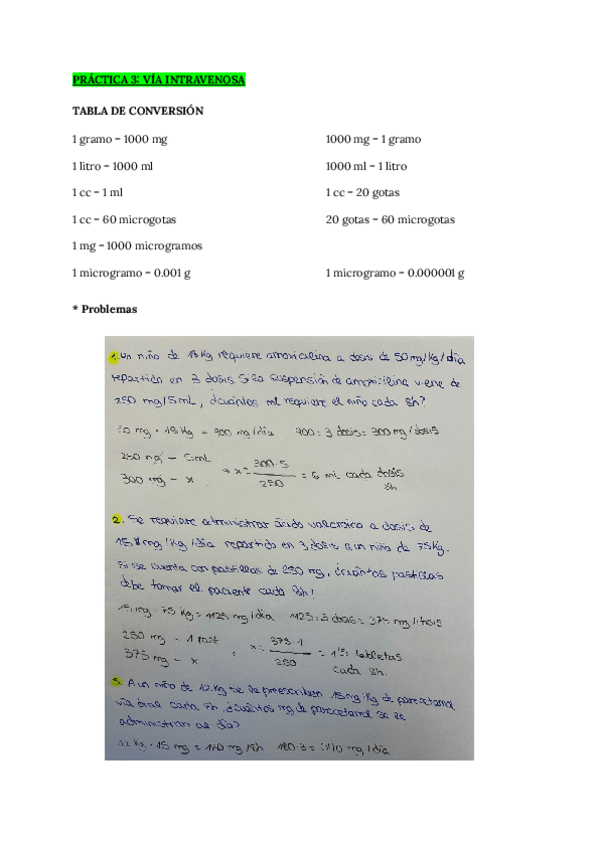 PRÁCTICA 3: VÍA INTRAVENOSA
TABLA DE CONVERSIÓN
1 gramo = 1000 mg 1000 mg = 1 gramo
1 litro = 1000 ml 1000 ml = 1 litro
1 cc = 1 ml 1 cc = 20 gotas
1 cc = 60 microgotas 20 gotas = 60 microgotas
1 mg = 1000 microgramos
1 microgramo = 0.001 g 1 microgramo = 0.000001 g
* Problemas
1. Un niño de 18 Kg requiere amoxicilina a dosis de 50 mg/kg/día
repartida en 3 dosis. Si la suspensión de amoxicilina viene de
250 mg/5mL, ¿cuántos ml requiere el niño cada 8h?
50 mg · 18 Kg = 900 mg/día 900 : 3 dosis = 300 mg/dosis
250 mg — 5mL
300 mg — x → x = 300·5 / 250 = 6 mL cada dosis
8h
2. Se requiere administrar ácido valproico a dosis de
15 mg/kg/día repartido en 3 dosis a un niño de 75 Kg.
Si se cuenta con pastillas de 250 mg, ¿cuántas pastillas
debe tomar el paciente cada 8h?
15 mg · 75 Kg = 1125 mg/día 1125 : 3 dosis = 375 mg/dosis
250 mg - 1 past
375 mg - x x = 375·1 / 250 = 1'5 tabletas
cada 8h.
3. A un niño de 12 Kg se le prescriben 15 mg/Kg de paracetamol
vía oral cada 8h, ¿cuántos mg de paracetamol se le
administran al día?
12 Kg · 15 mg = 180 mg/8h 180·3 = 540 mg/día